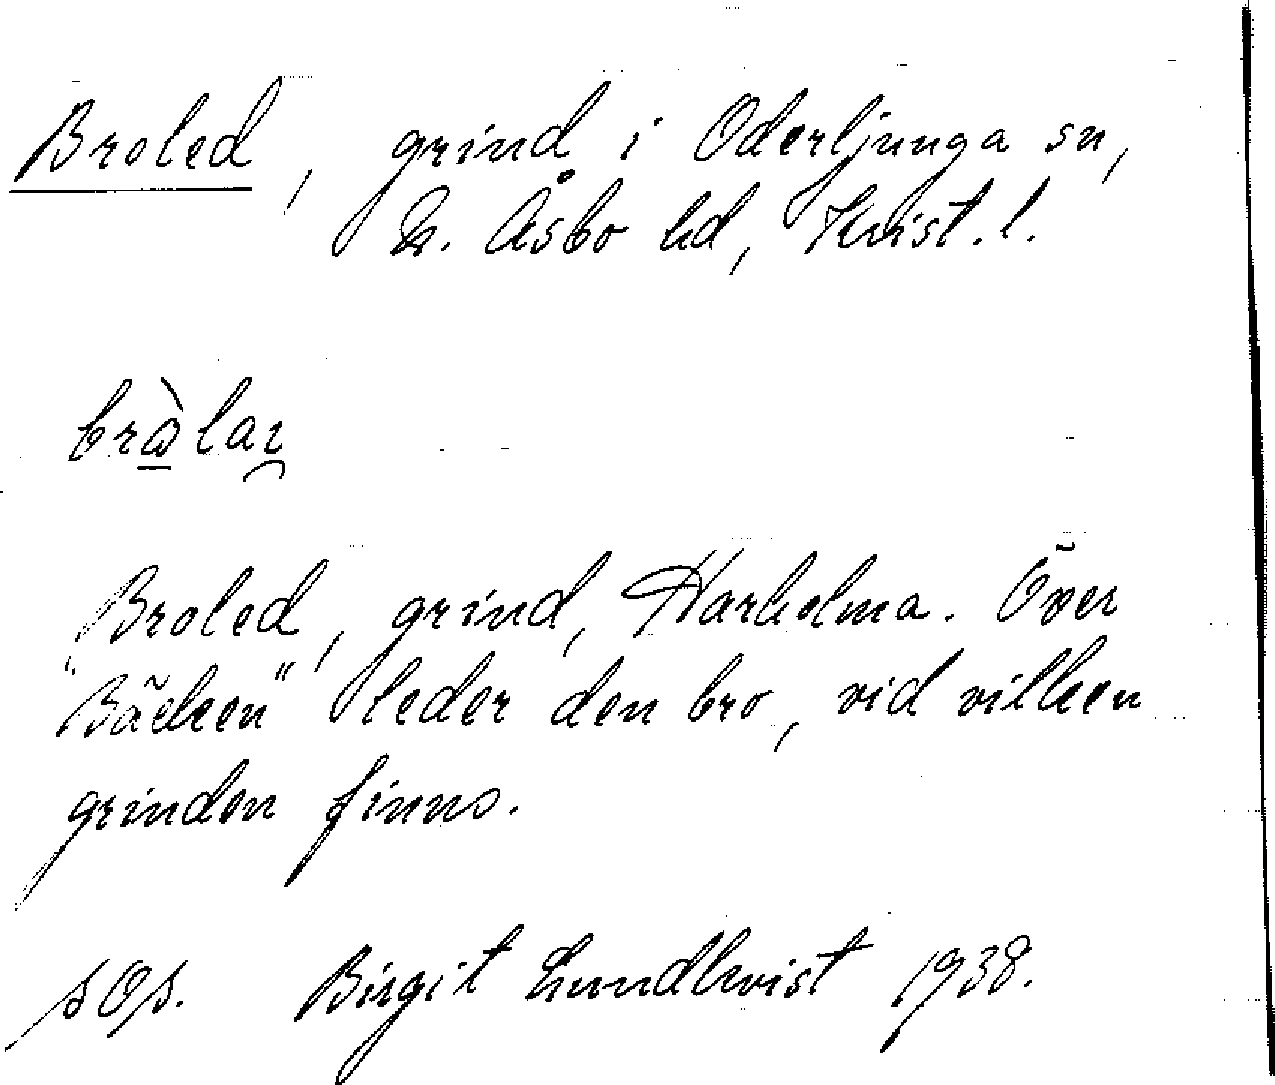 Broled, grind i Oderljunga sn,
N. Åsbo hd, Krist. l.
Broled, grind, Harholma. Över
"Bäcken" leder den bro, vid vilken
grinden finns.
Birgit Lundkvist 1938.